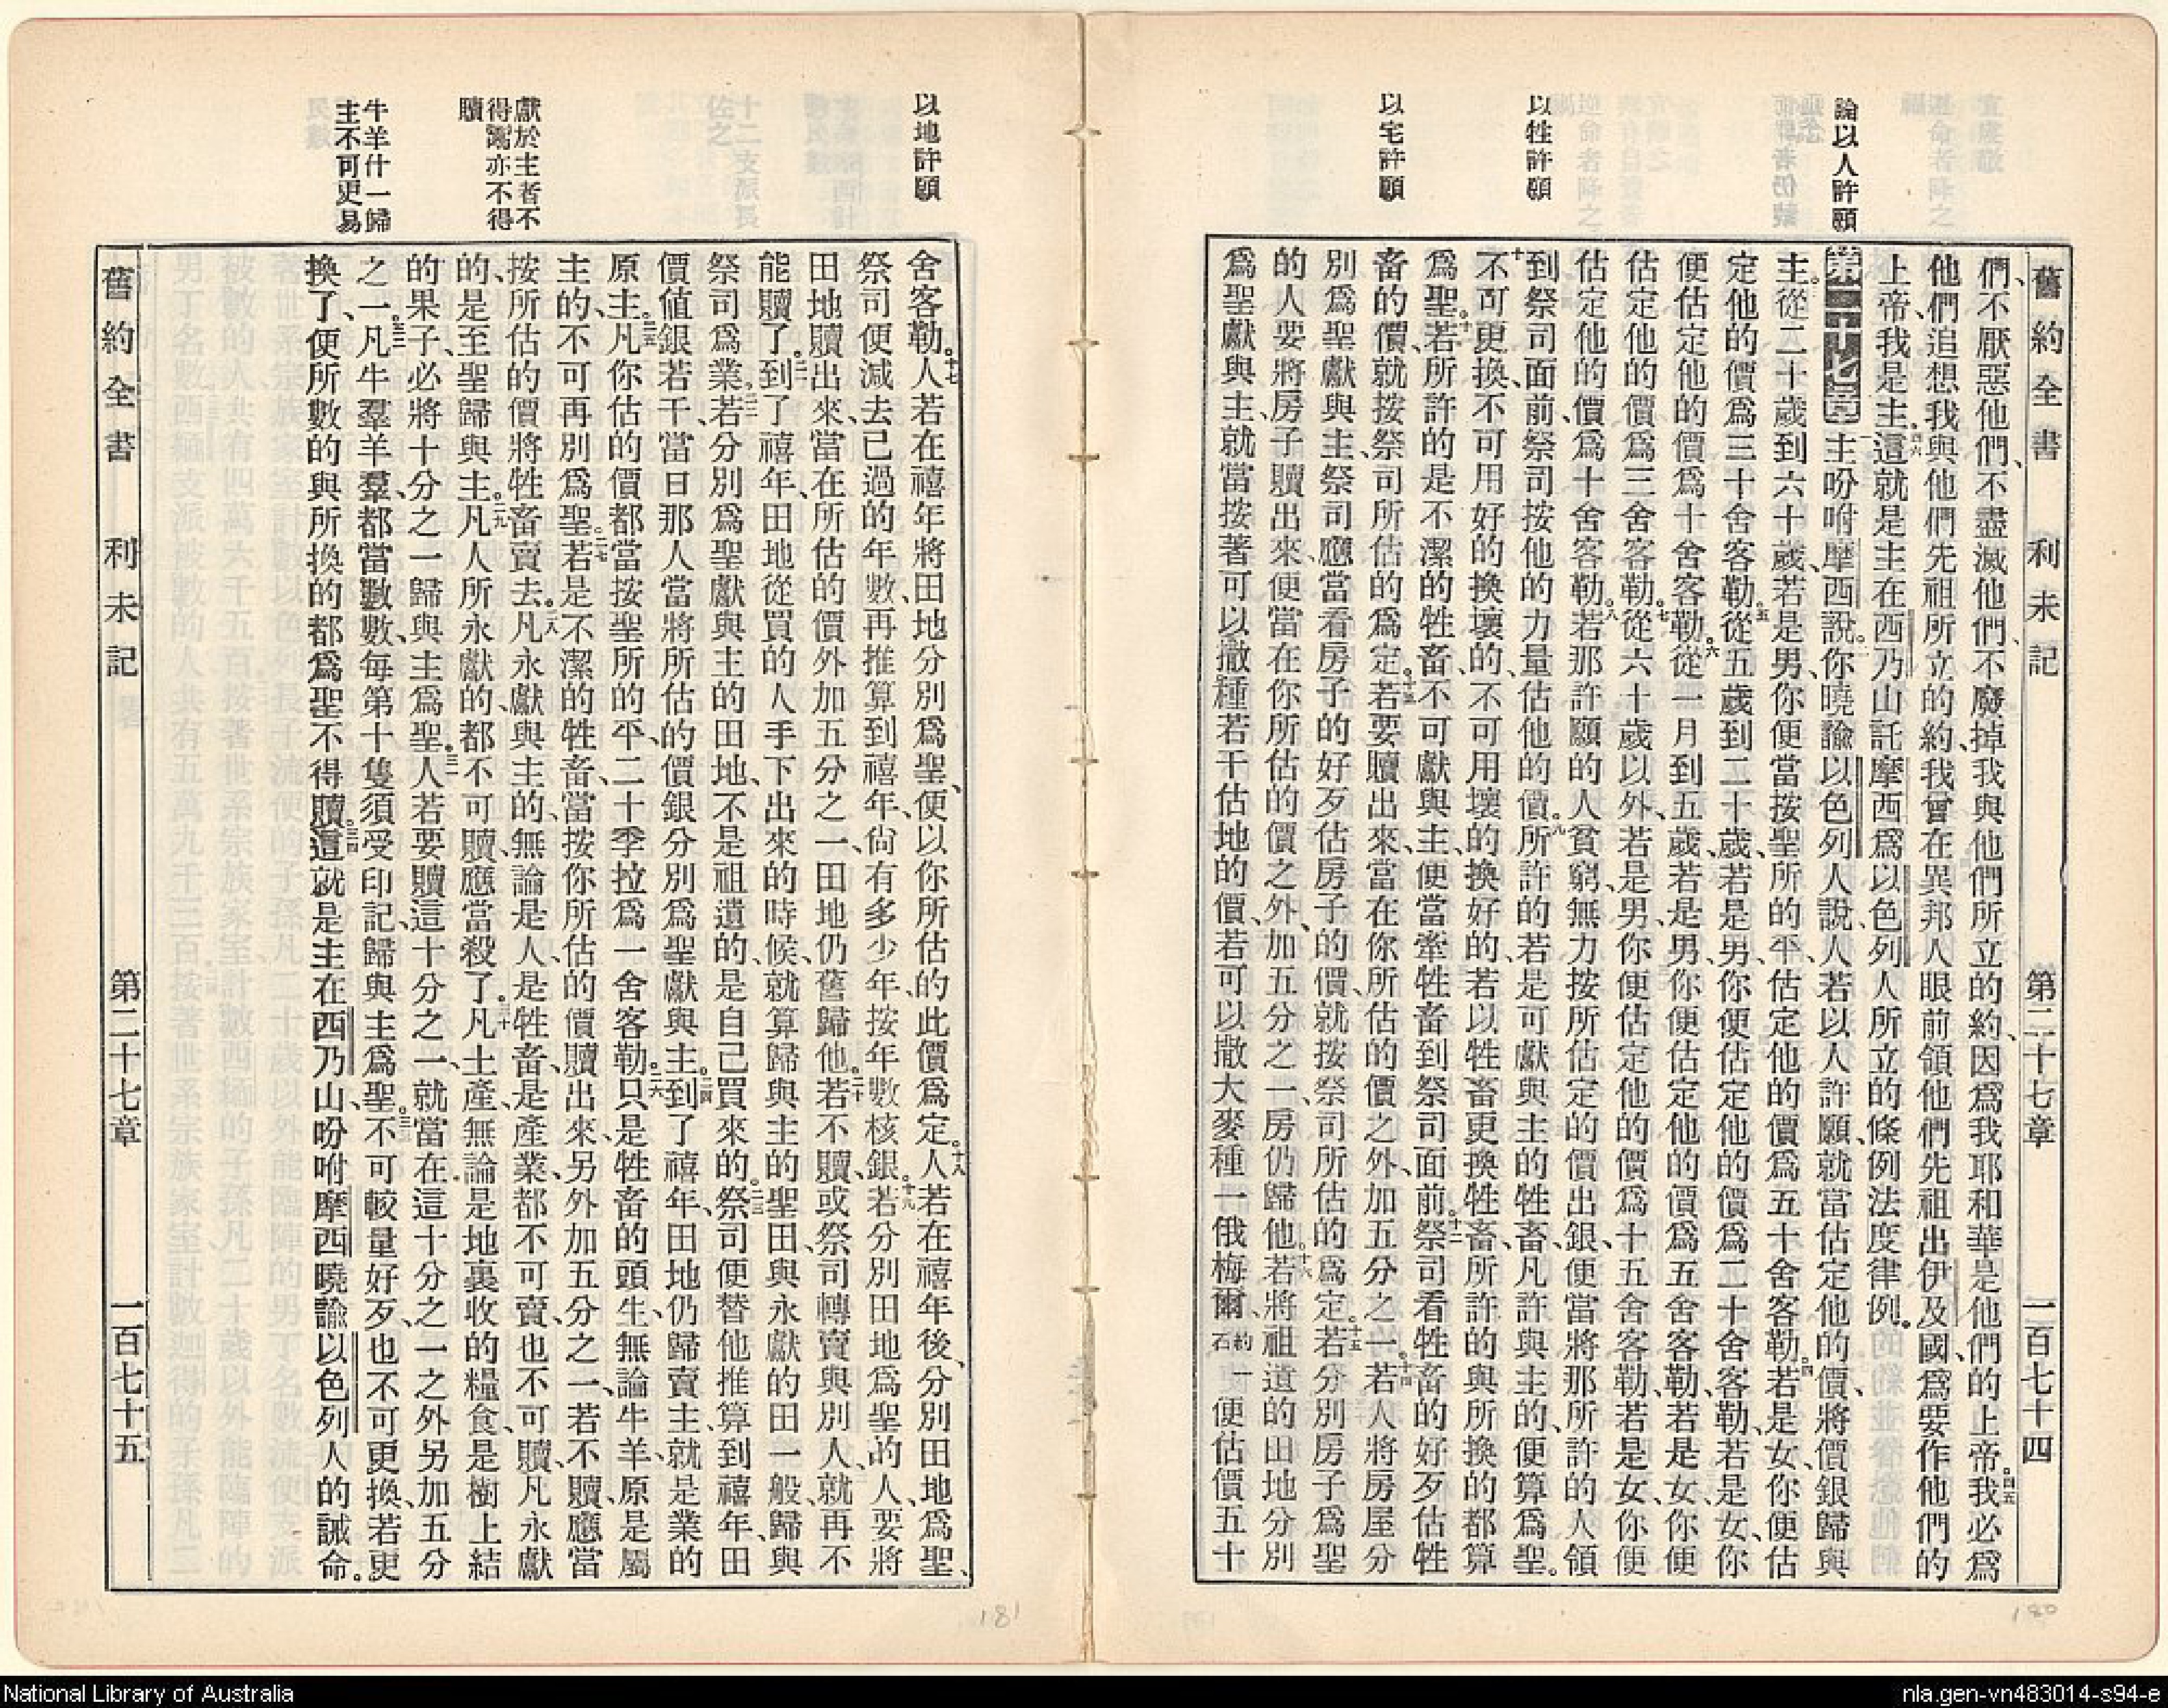 舊約全書 利未記 第二十七章 一百七十四
們、不厭惡他們、不盡滅他們、不廢掉我與他們所立的約、因爲我耶和華是他們的上帝。四五我必爲
他們追想我與他們先祖所立的約、我曾在異邦人眼前領他們先祖出伊及國、爲要作他們的
上帝、我是主。四六這就是主在西乃山託摩西爲以色列人所立的條例法度律例。
論以人許願
第二十七章 一主吩咐摩西說。二你曉諭以色列人說、人若以人許願、就當估定他的價、將價銀歸與
主。三從二十歲到六十歲、若是男、你便當按聖所的平、估定他的價爲五十舍客勒。四若是女、你便估
定他的價爲三十舍客勒。五從五歲到二十歲、若是男、你便估定他的價爲二十舍客勒、若是女、你
便估定他的價爲十舍客勒。六從一月到五歲、若是男、你便估定他的價爲五舍客勒、若是女、你便
估定他的價爲三舍客勒。七從六十歲以外、若是男、你便估定他的價爲十五舍客勒、若是女、你便
估定他的價爲十舍客勒。八若那許願的人貧窮、無力按所估定的價出銀、便當將那所許的人領
以牲許願
到祭司面前、祭司按他的力量估他的價。九所許的若是可獻與主的牲畜、凡許與主的、便算爲聖。
十不可更換、不可用好的換壞的、不可用壞的換好的、若以牲畜更換牲畜、所許的與所換的都算
爲聖。十一若所許的是不潔的牲畜、不可獻與主、便當牽牲畜到祭司面前。十二祭司看牲畜的好歹估牲
以宅許願
畜的價、就按祭司所估的爲定。十三若要贖出來、當在你所估的價之外、加五分之一。十四若人將房屋分
別爲聖獻與主、祭司應當看房子的好歹估房子的價、就按祭司所估的爲定。十五若分別房子爲聖
的人要將房子贖出來、便當在你所估的價之外、加五分之一、房仍歸他。十六若將祖遺的田地分別
爲聖獻與主、就當按著可以撒種若干估地的價、若可以撒大麥種一俄梅爾、約一石便估價五十
以地許願
舍客勒。十七人若在禧年將田地分別爲聖、便以你所估的此價爲定。十八人若在禧年後、分別田地爲聖、
祭司便減去已過的年數、再推算到禧年、尙有多少年、按年數核銀。十九若分別田地爲聖的人、要將
田地贖出來、當在所估的價外加五分之一、田地仍舊歸他。二十若不贖、或祭司轉賣與別人、就再不
能贖了。二一到了禧年、田地從買的人手下出來的時候、就算歸與主的聖田、與永獻的田一般、歸與
祭司爲業。二二若分別爲聖獻與主的田地、不是祖遺的、是自己買來的。二三祭司便替他推算、到禧年、田
價值銀若干、當日那人當將所估的價銀分別爲聖獻與主。二四到了禧年、田地仍歸賣主、就是業的
原主。二五凡你估的價都當按聖所的平、二十季拉爲一舍客勒。二六只是牲畜的頭生、無論牛羊、原是屬
主的、不可再別爲聖。二七若是不潔的牲畜、當按你所估的價贖出來、另外加五分之一、若不贖、應當
獻於主者不
得鬻亦不得
贖
按所估的價將牲畜賣去。二八凡永獻與主的、無論是人、是牲畜、是產業、都不可賣、也不可贖、凡永獻
的、是至聖歸與主。二九凡人所永獻的、都不可贖、應當殺了。三十凡土產、無論是地裏收的糧食、是樹上結
的果子、必將十分之一歸與主爲聖。三一人若要贖這十分之一、就當在這十分之一之外另加五分
牛羊什一歸
主不可更易
之一。三二凡牛羣羊羣、都當數數、每第十隻須受印記、歸與主爲聖。三三不可較量好歹、也不可更換、若更
換了、便所數的與所換的都爲聖不得贖。三四這就是主在西乃山吩咐摩西曉諭以色列人的誡命。
舊約全書 利未記 第二十七章 一百七十五
180
181
National Library of Australia
nla.gen-vn483014-s94-e